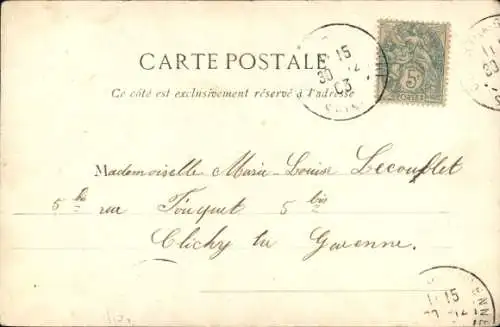 CARTE POSTALE
Ce côté est exclusivement réservé à l'adresse
15
30 12
03
5c
POSTES
Mademoiselle Marie-Louise Lecouflet
5 bis rue Fouquet 5 bis
Clichy la Garenne.
15
12